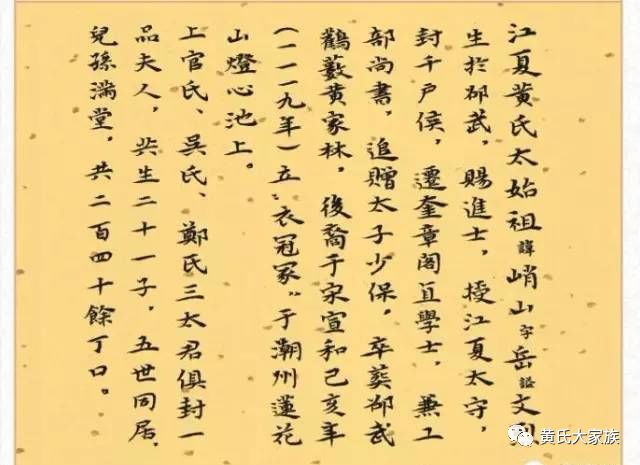 江夏黃氏太始祖諱峭山字岳謚文烈
生於邵武，賜進士，授江夏太守，
封千戶侯，遷奎章閣直學士，兼工
部尚書，追贈太子少保，卒葬邵武
鸛藪黃家林，後裔于宋宣和己亥年
（一一一九年）立“衣冠冢”于潮州蓮花
山燈心池上。
上官氏、吳氏、鄭氏三太君俱封一
品夫人，共生二十一子，五世同居，
兒孫滿堂，共二百四十餘丁口。
黄氏大家族